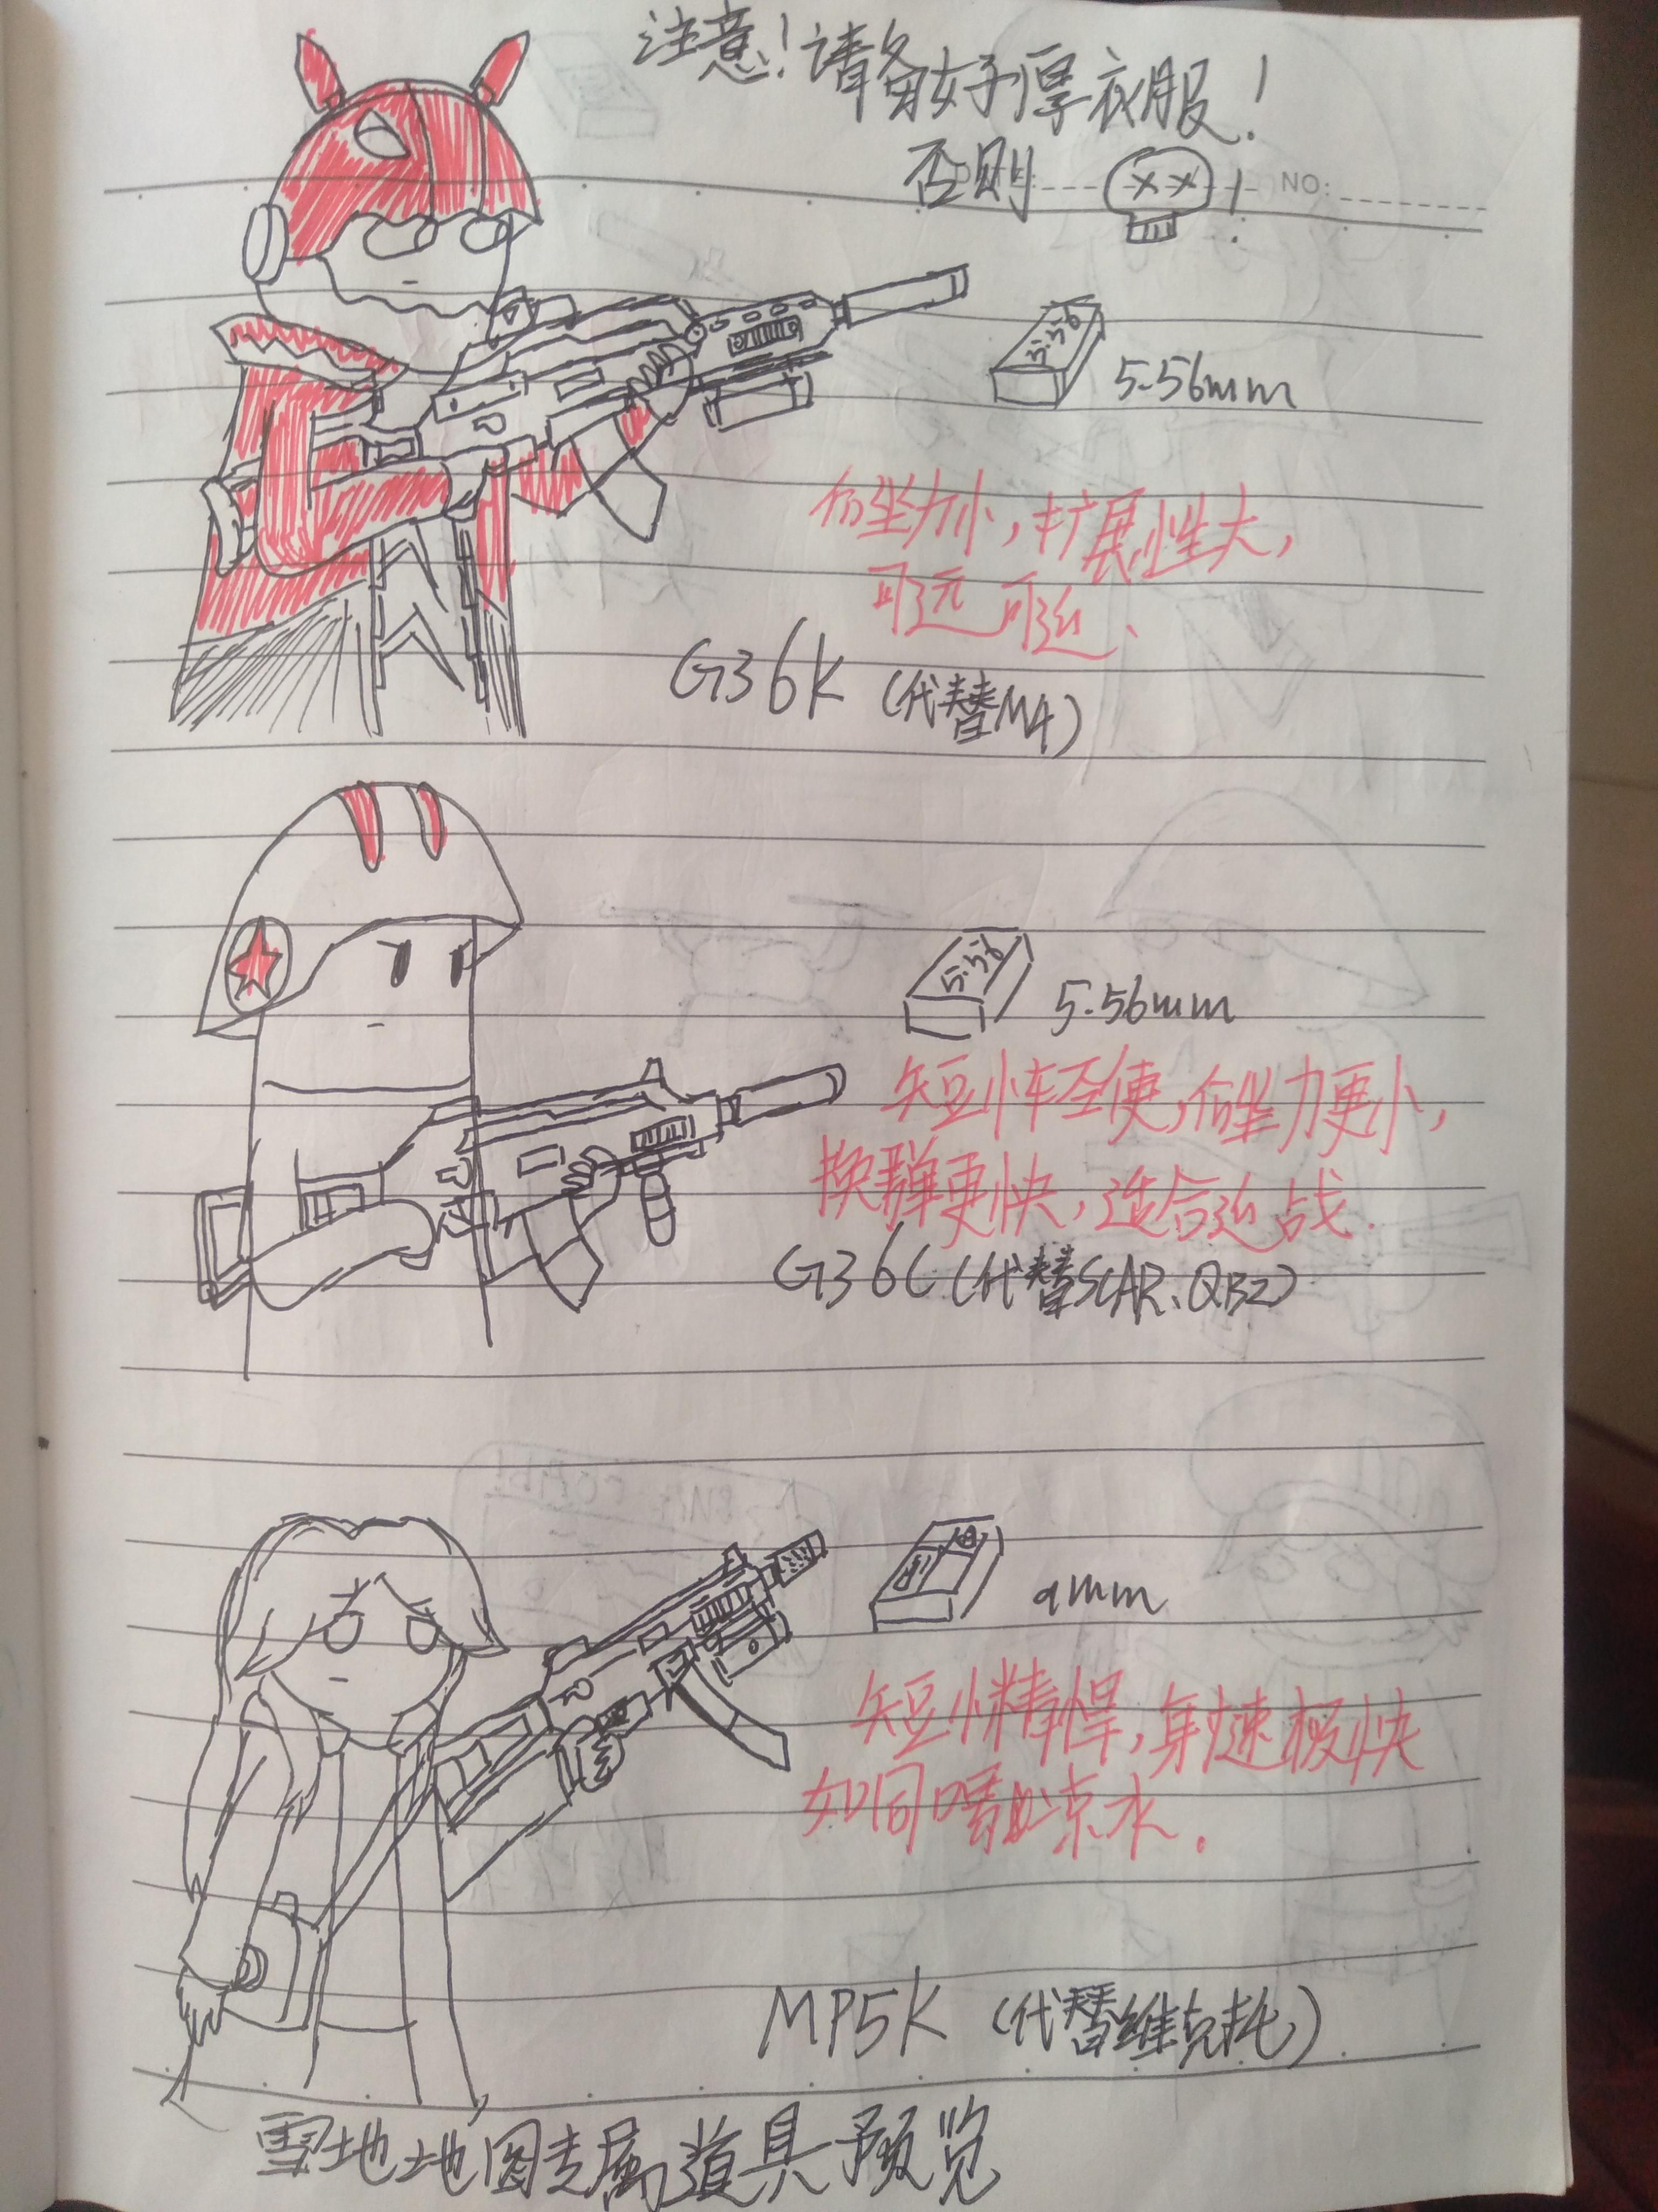 注意!请备好厚衣服!
否则
!
NO:
5.56
5.56mm
后坐力小,扩展性大,
可远可近、
G36K (代替M4)
5.56
5.56mm
短小轻便,后坐力更小,
换弹更快,适合近战.
G36C (代替SCAR、QBZ)
9mm
短小精悍,射速极快
如同喝凉水.
MP5K (代替维克托)
雪地地图专属道具预览